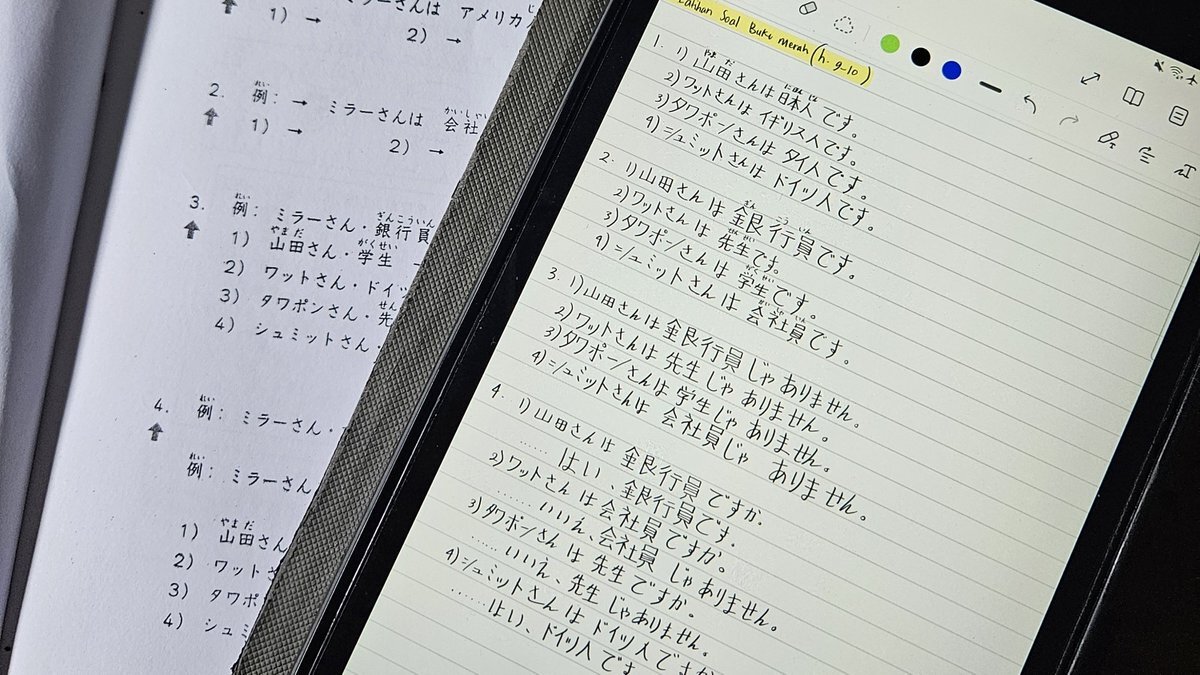 ミラーさんは アメリカ
1) →
2) →
れい かいしゃ
2. 例: → ミラーさんは 会社
1) →
2) →
れい ぎんこういん
3. 例: ミラーさん・銀行員
やまだ がくせい
1) 山田さん・学生 →
2) ワットさん・ドイツ
せん
3) タワポンさん・先
4) シュミットさん・
れい
4. 例: ミラーさん・
れい
例: ミラーさん
やまだ
1) 山田さん
2) ワットさ
3) タワポ
4) シュミ
Latihan Soal Buku Merah (h. 9-10)
やま だ にほんじん
1. 1) 山田さんは日本人です。
2) ワットさんは イギリス人です。
3) タワポンさんは タイ人です。
4) シュミットさんは ドイツ人です。
ぎん こう いん
2. 1) 山田さんは 銀行員です。
せんせい
2) ワットさんは 先生です。
がくせい
3) タワポンさんは 学生です。
かいしゃいん
4) シュミットさんは 会社員です。
3. 1) 山田さんは 銀行員じゃ ありません。
2) ワットさんは 先生じゃ ありません。
3) タワポンさんは 学生じゃ ありません。
4) シュミットさんは 会社員じゃ ありません。
4. 1) 山田さんは 銀行員ですか。
...... はい、銀行員です。
2) ワットさんは 会社員ですか。
...... いいえ、会社員 じゃありません。
3) タワポンさんは 先生ですか。
...... いいえ、先生 じゃありません。
4) シュミットさんは ドイツ人ですか
...... はい、ドイツ人です